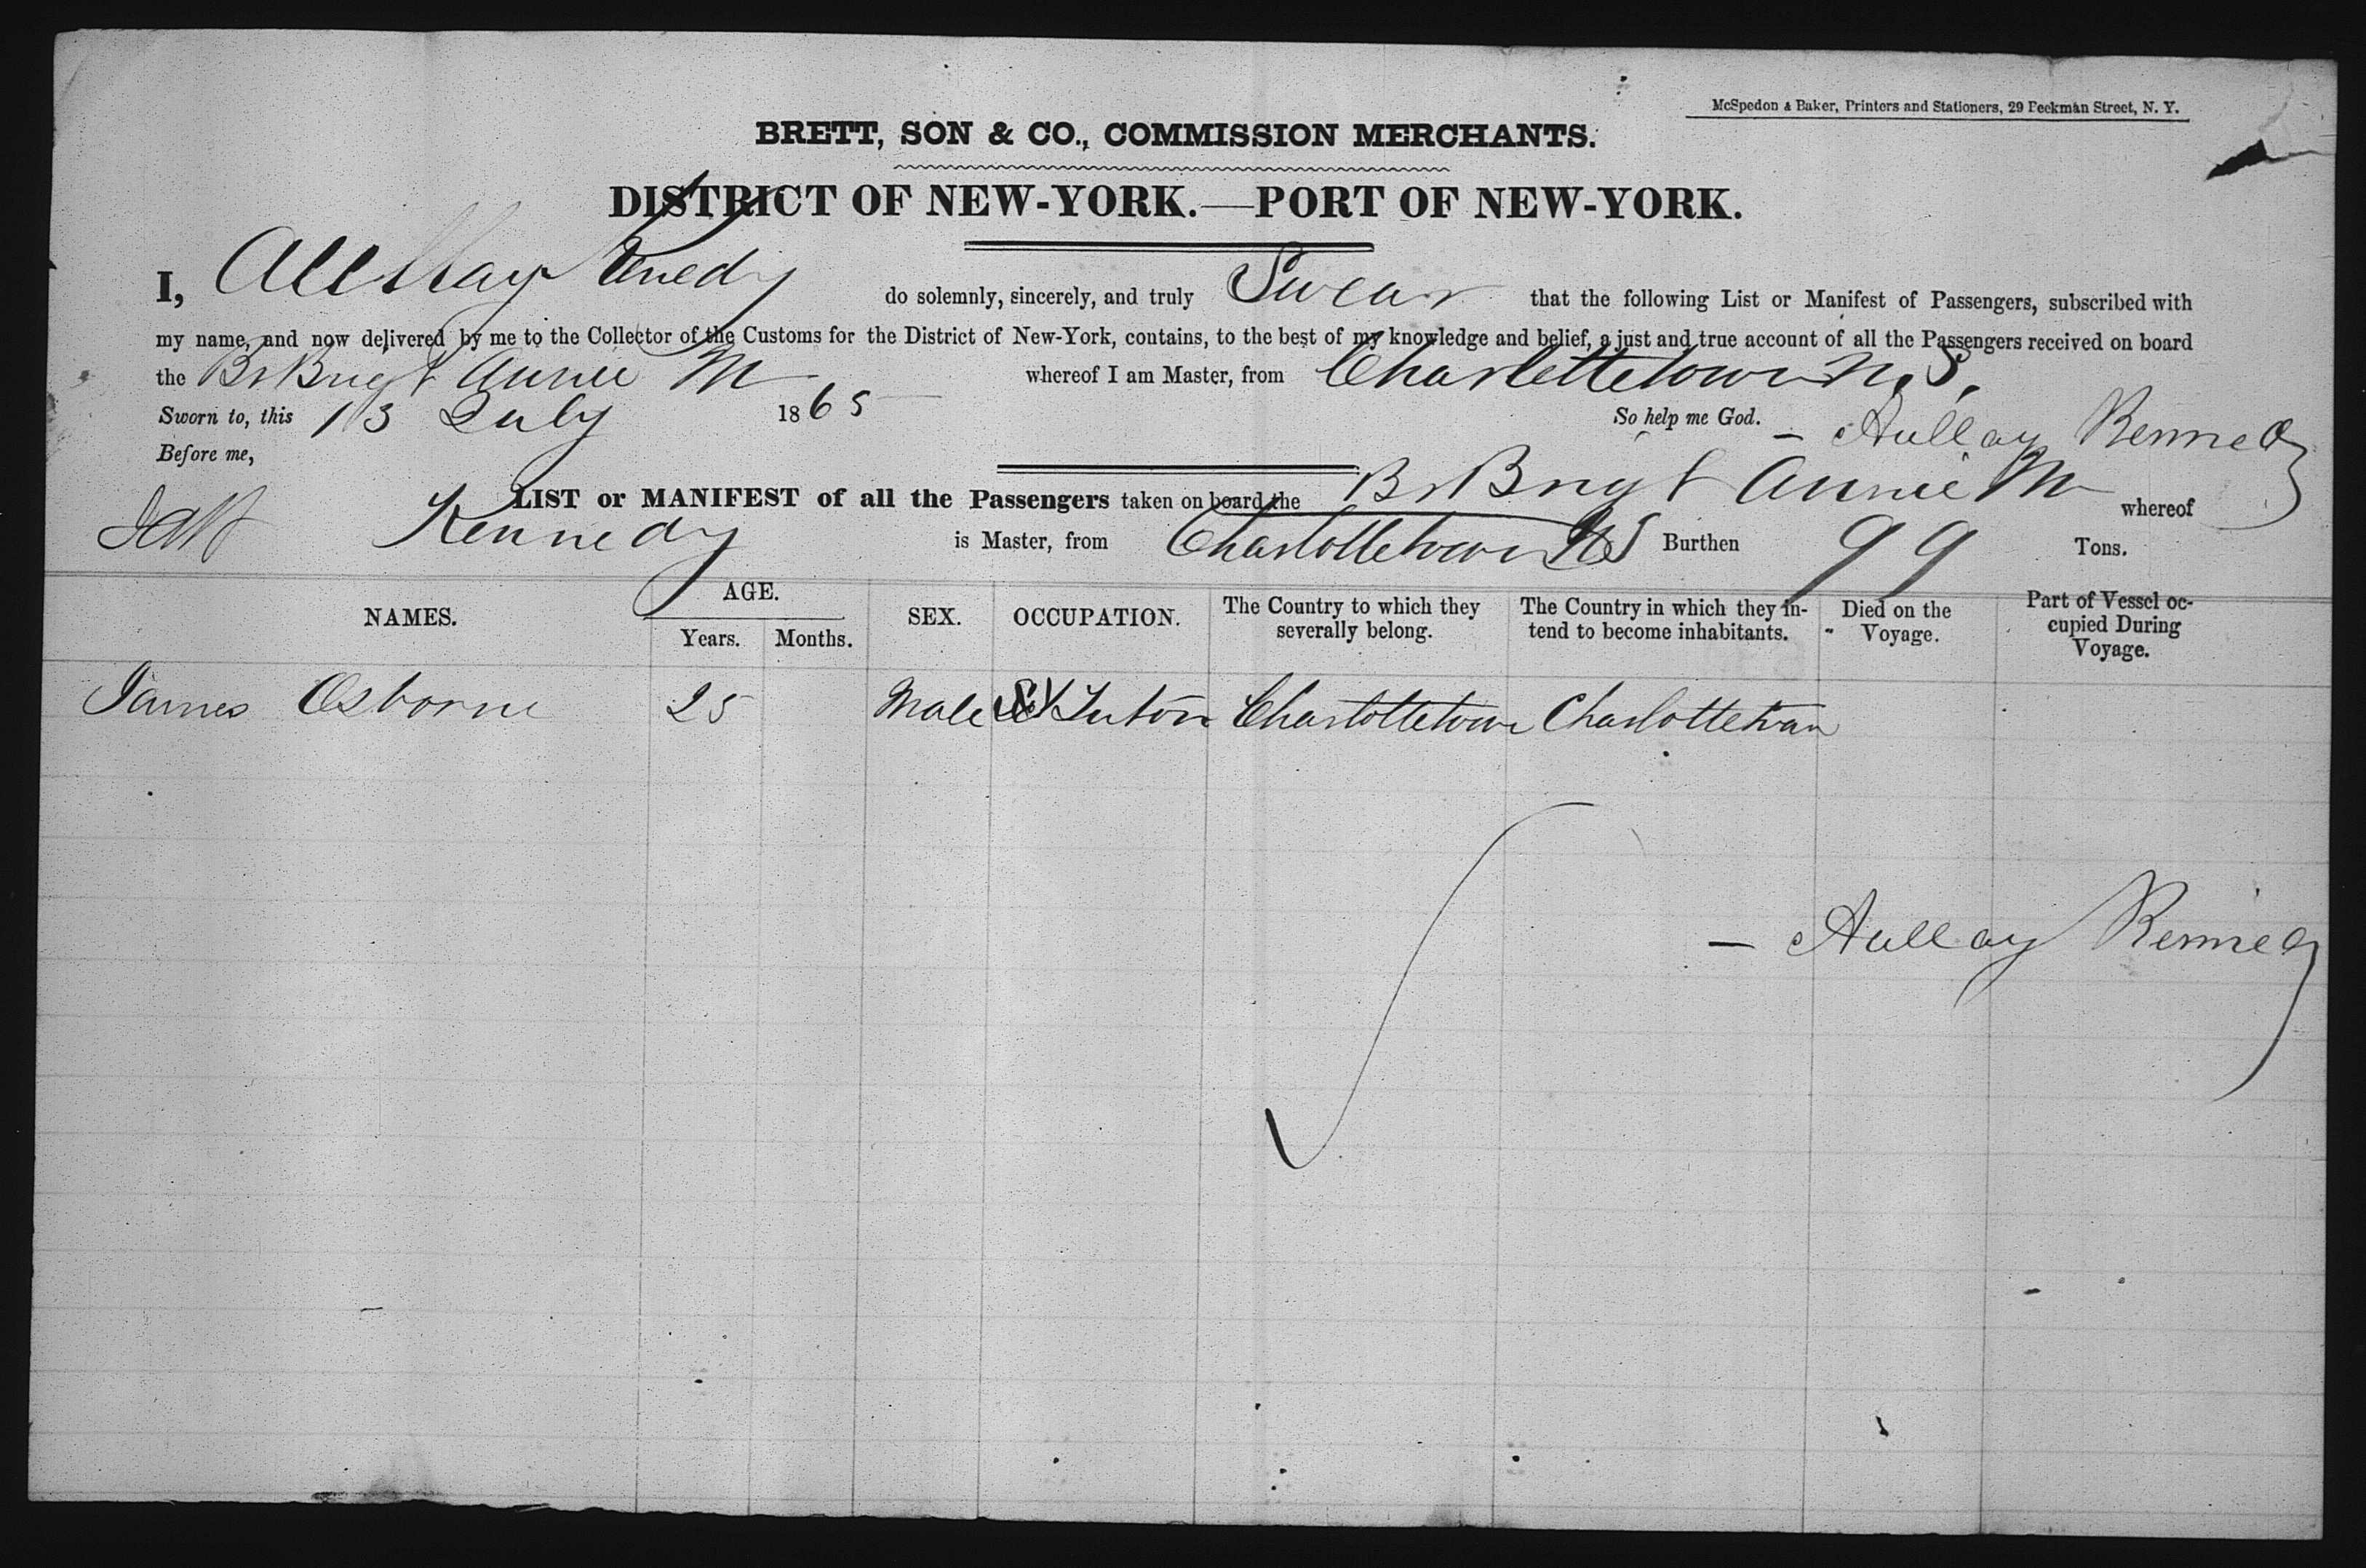 McSpedon & Baker, Printers and Stationers, 29 Beekman Street, N. Y.
BRETT, SON & CO., COMMISSION MERCHANTS.
DISTRICT OF NEW-YORK.—PORT OF NEW-YORK.
I, Kenedy do solemnly, sincerely, and truly Swear that the following List or Manifest of Passengers, subscribed with
my name, and now delivered by me to the Collector of the Customs for the District of New-York, contains, to the best of my knowledge and belief, a just and true account of all the Passengers received on board
the Br Brigt Annie M whereof I am Master, from Charlettetown N, S,
Sworn to, this 13 July 1865 So help me God. – Aullay Kennedy
Before me,
LIST or MANIFEST of all the Passengers taken on board the Br Brigt Annie M whereof
Kennedy is Master, from Charlottetown NS Burthen 99 Tons.
NAMES. AGE. Years. Months. SEX. OCCUPATION. The Country to which they severally belong. The Country in which they intend to become inhabitants. Died on the Voyage. Part of Vessel occupied During Voyage.
James Osborne 25 Male Charlottetown Charlottetown
– Aullay Kennedy